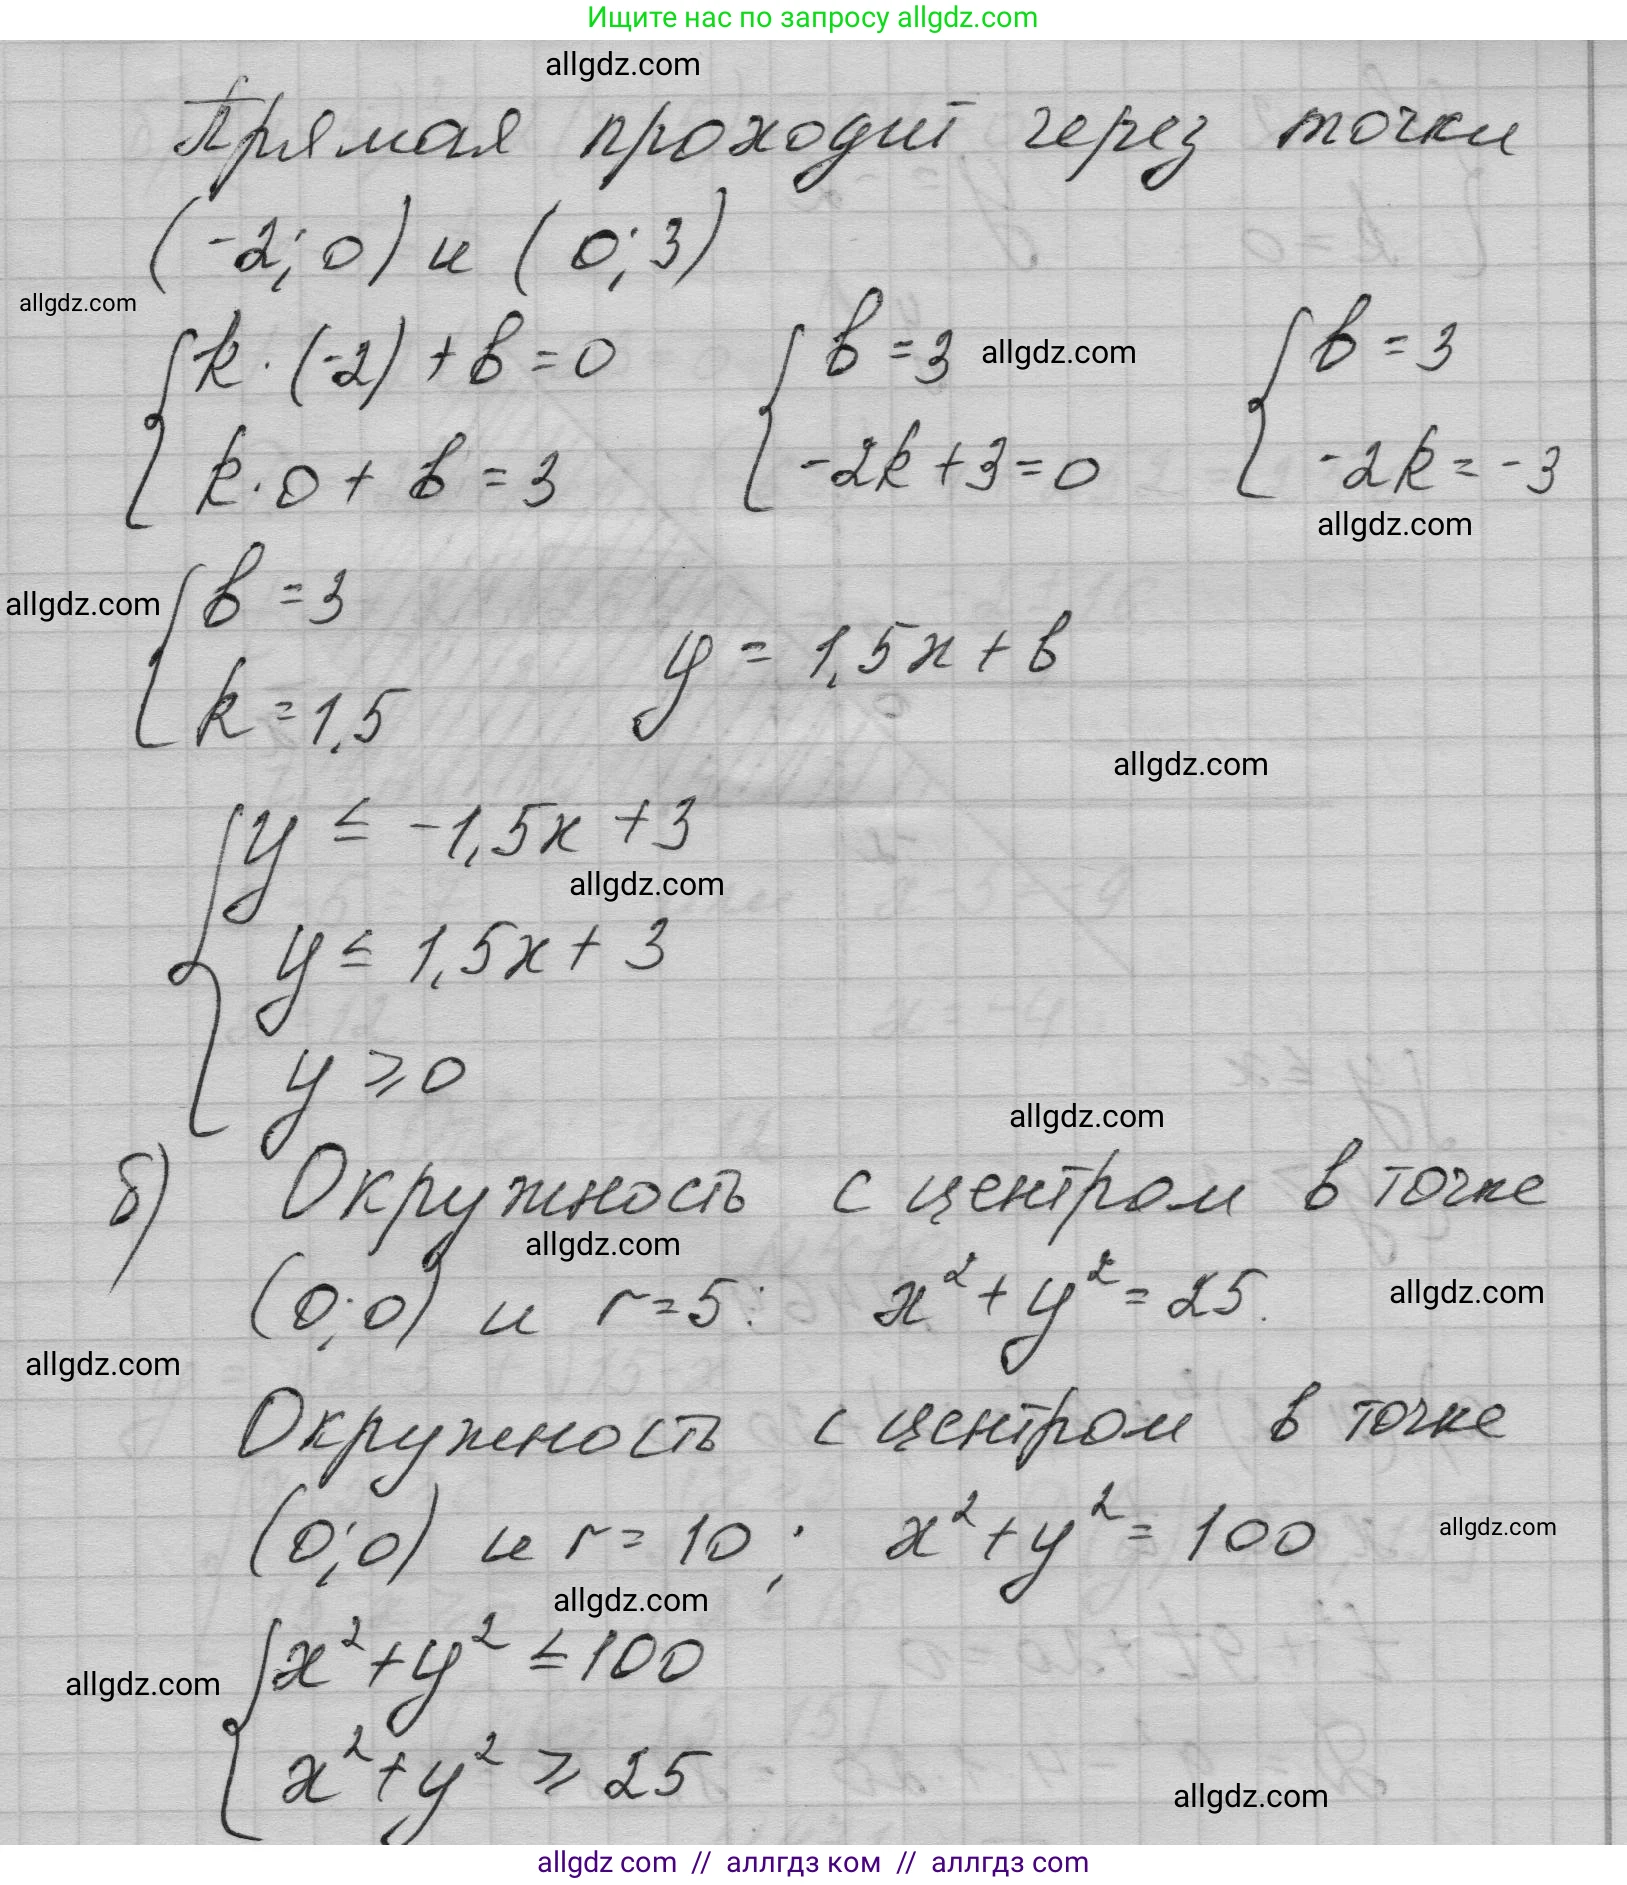 Ищите нас по запросу allgdz.com
allgdz.com
Прямая проходит через точки
(-2; 0) и (0; 3)
allgdz.com
{ k · (-2) + b = 0 { b = 3 allgdz.com { b = 3
k · 0 + b = 3 -2k + 3 = 0 -2k = -3
allgdz.com
allgdz.com { b = 3
k = 1,5 y = 1,5x + b
allgdz.com
{ y ≤ -1,5x + 3
allgdz.com
y ≤ 1,5x + 3
y ⩾ 0
allgdz.com
б) Окружность с центром в точке
allgdz.com
(0; 0) и r = 5: x² + y² = 25. allgdz.com
allgdz.com
Окружность с центром в точке
(0; 0) и r = 10; x² + y² = 100 allgdz.com
allgdz.com
{ x² + y² ≤ 100
allgdz.com
x² + y² ⩾ 25
allgdz.com
allgdz com // аллгдз ком // аллгдз com